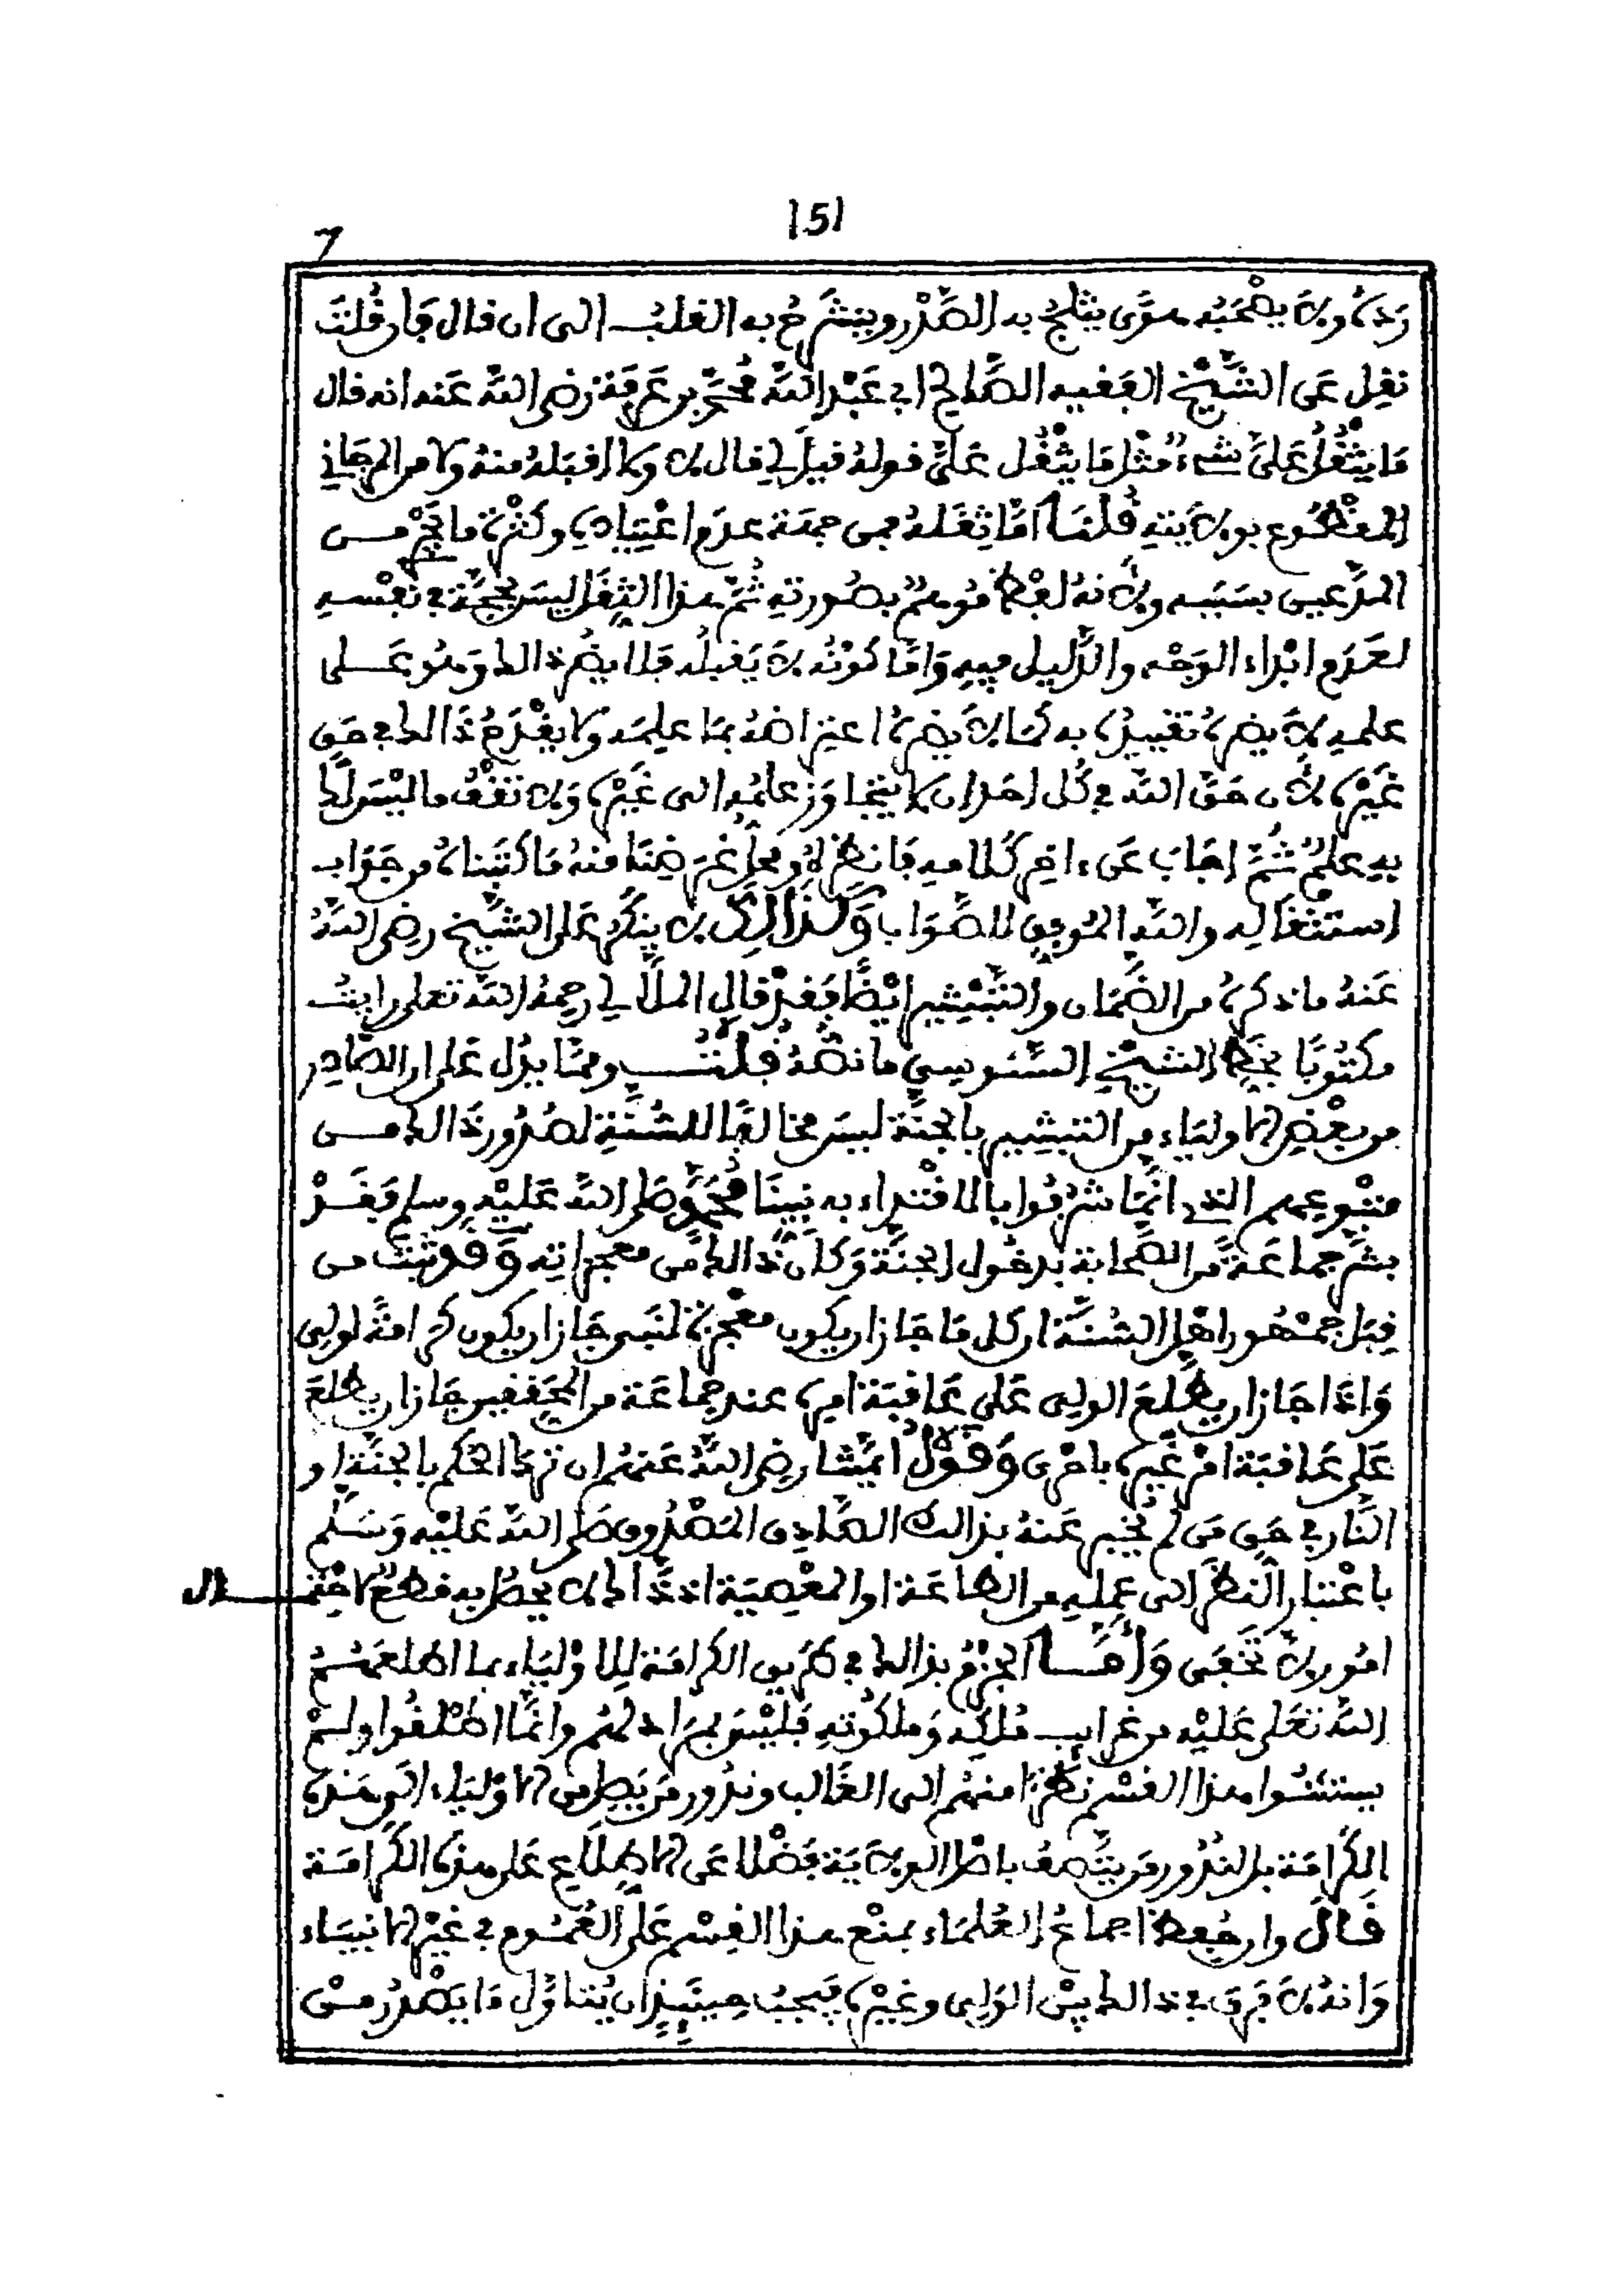 151
7
رده ولا يصحبه هوى يثلج به الصدر وينشرح به القلب الى ان قال فان قلت
نقل عن الشيخ الفقيه الصالح ابي عبد الله محمد بن عرفة رضي الله عنه انه قال
ما يثقل علي شيء مثل ما يثقل علي قوله قيل لي قال لا ولا اقبله منه ولا من المرجاني
المقطوع بولايته قلنا اما ثقله فمن جهة عدم اعتياده وكثرة ما يخبر من
المدعين بسببه ولانه لفظ موهم بصورته ثم هذا الثقل ليس بحجة في نفسه
لعدم ابداء الوجه والدليل فيه واما كونه لا يقبله فلا يضر ذالك وهو على
علمه لا يضره تقييده به كما لا يضره اعتراضه بما علمه ولا يقدح ذالك في حق
غيره لان حق الله في كل احد ان لا يتجاوز علمه الى غيره ولا تقف ما ليس لك
به علم ثم اجاب عن ءاخر كلامه فانظره ومحل غرضنا منه ما كتبناه من جواب
استثقاله والله الموفق للصواب وكذالك لا ينكر على الشيخ رضي الله
عنه ما ذكره من الضمان والتبشير ايضا فقد قال الملالي رحمه الله تعلى رايت
مكتوبا بخط الشيخ السنوسي ما نصه قلت ومما يدل على ان الصادر
من بعض الاولياء من التبشير بالجنة ليس مخالفا للسنة لصدور ذالك من
متبوعهم الذي انما شرفوا بالاقتداء به نبينا محمد صلى الله عليه وسلم فقد
بشر جماعة من الصحابة بدخول الجنة وكان ذالك من معجزاته وقد ثبت من
قبل جمهور اهل السنة ان كل ما جاز ان يكون معجزة لنبي جاز ان يكون كرامة لولي
واذا جاز ان يطلع الولي على عاقبة امره عند جماعة من المحققين جاز ان يطلع
على عاقبة امر غيره باحرى وقول ائمتنا رضي الله عنهم ان ترك الحكم بالجنة او
النار في حق من لم يخبر عنه بذالك الصادق المصدوق صلى الله عليه وسلم
باعتبار النظر الى عمله من الطاعة او المعصية اذ ذالك لا يحصل به قطع لاحتمال
امور لا تخفى واما الجزم بذالك في طريق الكرامة للاولياء بما اطلعهم
الله تعلى عليه من غرايب ملكه وملكوته فليس بمراد لهم وانما اطلقوا ولم
يستثنوا هذا القسم نظرا منهم الى الغالب وندور من يصل من الاولياء الى هذه
الكرامة بل الندور من يتصف باصل الولاية فضلا عن الاطلاع على هذه الكرامة
قال وان حفظ اجماع العلماء بمنع هذا القسم على العموم في غير الانبياء
وانه لا فرق في ذالك بين الولي وغيره فيجب حينئذ ان يتناول ما يصدر من